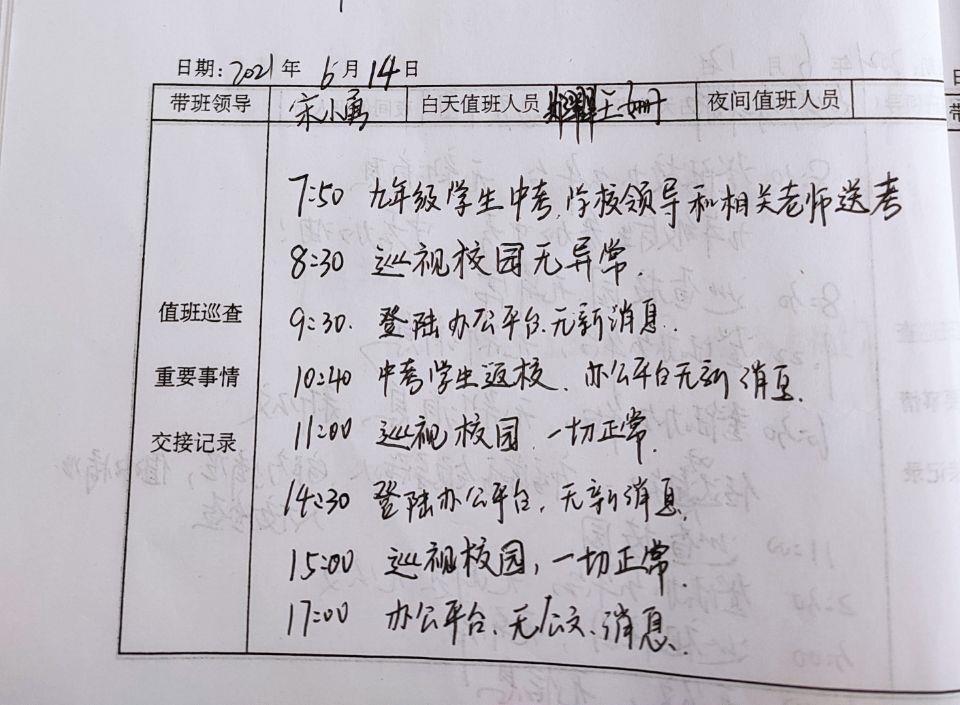 日期：2021年 6月 14日
带班领导 宋小勇 白天值班人员 王姗 夜间值班人员
7:50 九年级学生中考,学校领导和相关老师送考
8:30 巡视校园无异常.
值班巡查
9:30. 登陆办公平台.无新消息.
重要事情
10:40 中考学生返校、办公平台无新消息.
11:00 巡视校园.一切正常.
交接记录
14:30 登陆办公平台,无新消息.
15:00 巡视校园,一切正常.
17:00 办公平台、无公文、消息.